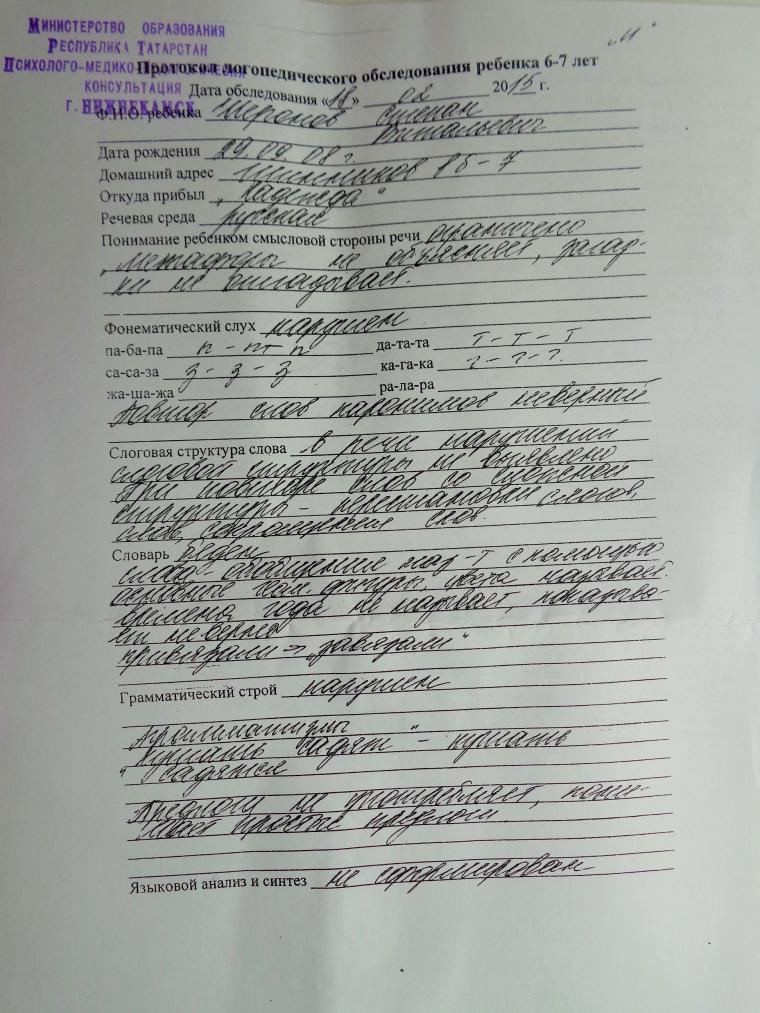 "М"
МИНИСТЕРСТВО ОБРАЗОВАНИЯ
РЕСПУБЛИКА ТАТАРСТАН
ПСИХОЛОГО-МЕДИКО-
КОНСУЛЬТАЦИЯ
г. НИЖНЕКАМСК
Протокол логопедического обследования ребенка 6-7 лет
Дата обследования «18» 02 2015 г.
Ф.И.О. ребенка Степан
Витальевич
Дата рождения 29.09.08 г.
Домашний адрес 8б - 7
Откуда прибыл „Надежда"
Речевая среда русская
Понимание ребенком смысловой стороны речи ограничено
, метафоры не объясняет, загад-
ки не отгадывает.
Фонематический слух нарушен
па-ба-па п - пт п да-та-та т - т - т
са-са-за з - з - з ка-га-ка г - г - г.
жа-ша-жа ра-ла-ра
Повтор слов паронимов неверный
Слоговая структура слова в речи нарушений
слоговой структуры не выявлено
При повторе слов со сложной
структуры - перестановки слогов,
слов, сокращения слов.
Словарь беден
слова - обобщения с помощью
основные фигуры, цвета называет.
времена года не называет, показыва-
ет неверно
привязали -> „завязали"
Грамматический строй нарушен
Аграмматизмы
" Кушать садят " - кушать
садятся
Предлоги не употребляет, пони-
мает простые предлоги
Языковой анализ и синтез не сформирован